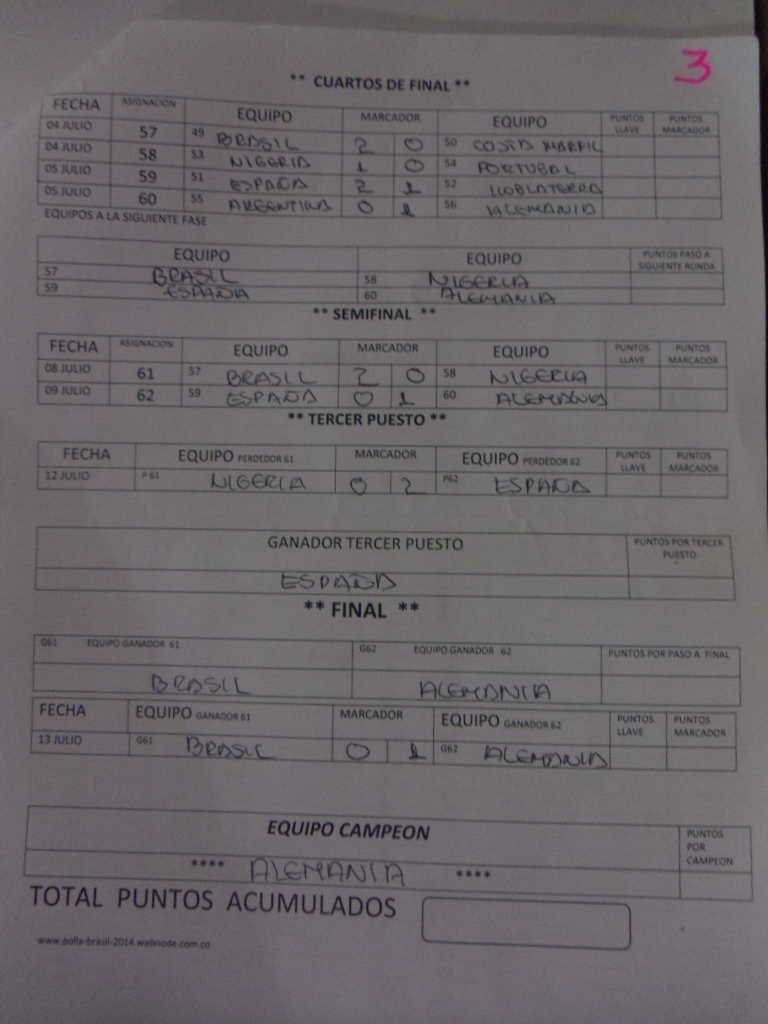 3
** CUARTOS DE FINAL **
FECHA ASIGNACION EQUIPO MARCADOR EQUIPO PUNTOS LLAVE PUNTOS MARCADOR
04 JULIO 57 49 BRASIL 2 0 50 COSTA MARFIL
04 JULIO 58 53 NIGERIA 1 0 54 PORTUGAL
05 JULIO 59 51 ESPAÑA 2 1 52 INGLATERRA
05 JULIO 60 55 ARGENTINA 0 1 56 ALEMANIA
EQUIPOS A LA SIGUIENTE FASE
EQUIPO EQUIPO PUNTOS PASO A SIGUIENTE RONDA
57 BRASIL 58 NIGERIA
59 ESPAÑA 60 ALEMANIA
** SEMIFINAL **
FECHA ASIGNACION EQUIPO MARCADOR EQUIPO PUNTOS LLAVE PUNTOS MARCADOR
08 JULIO 61 57 BRASIL 2 0 58 NIGERIA
09 JULIO 62 59 ESPAÑA 0 1 60 ALEMANIA
** TERCER PUESTO **
FECHA EQUIPO PERDEDOR 61 MARCADOR EQUIPO PERDEDOR 62 PUNTOS LLAVE PUNTOS MARCADOR
12 JULIO P 61 NIGERIA 0 2 P62 ESPAÑA
GANADOR TERCER PUESTO PUNTOS POR TERCER PUESTO
ESPAÑA
** FINAL **
G61 EQUIPO GANADOR 61 G62 EQUIPO GANADOR 62 PUNTOS POR PASO A FINAL
BRASIL ALEMANIA
FECHA EQUIPO GANADOR 61 MARCADOR EQUIPO GANADOR 62 PUNTOS LLAVE PUNTOS MARCADOR
13 JULIO G61 BRASIL 0 1 G62 ALEMANIA
EQUIPO CAMPEON PUNTOS POR CAMPEON
**** ALEMANIA ****
TOTAL PUNTOS ACUMULADOS
www.polla-brasil-2014.webnode.com.co